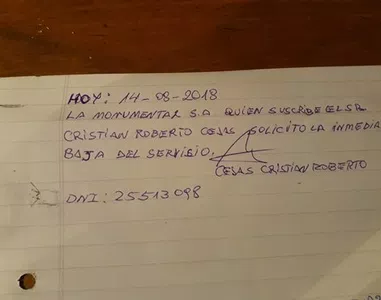 HOY: 14-08-2018
LA MONUMENTAL S.A QUIEN SUSCRIBE EL SR
CRISTIAN ROBERTO CESAS SOLICITO LA INMEDIA
BAJA DEL SERVISIO.
CESAS CRISTIAN ROBERTO
DNI: 25513098